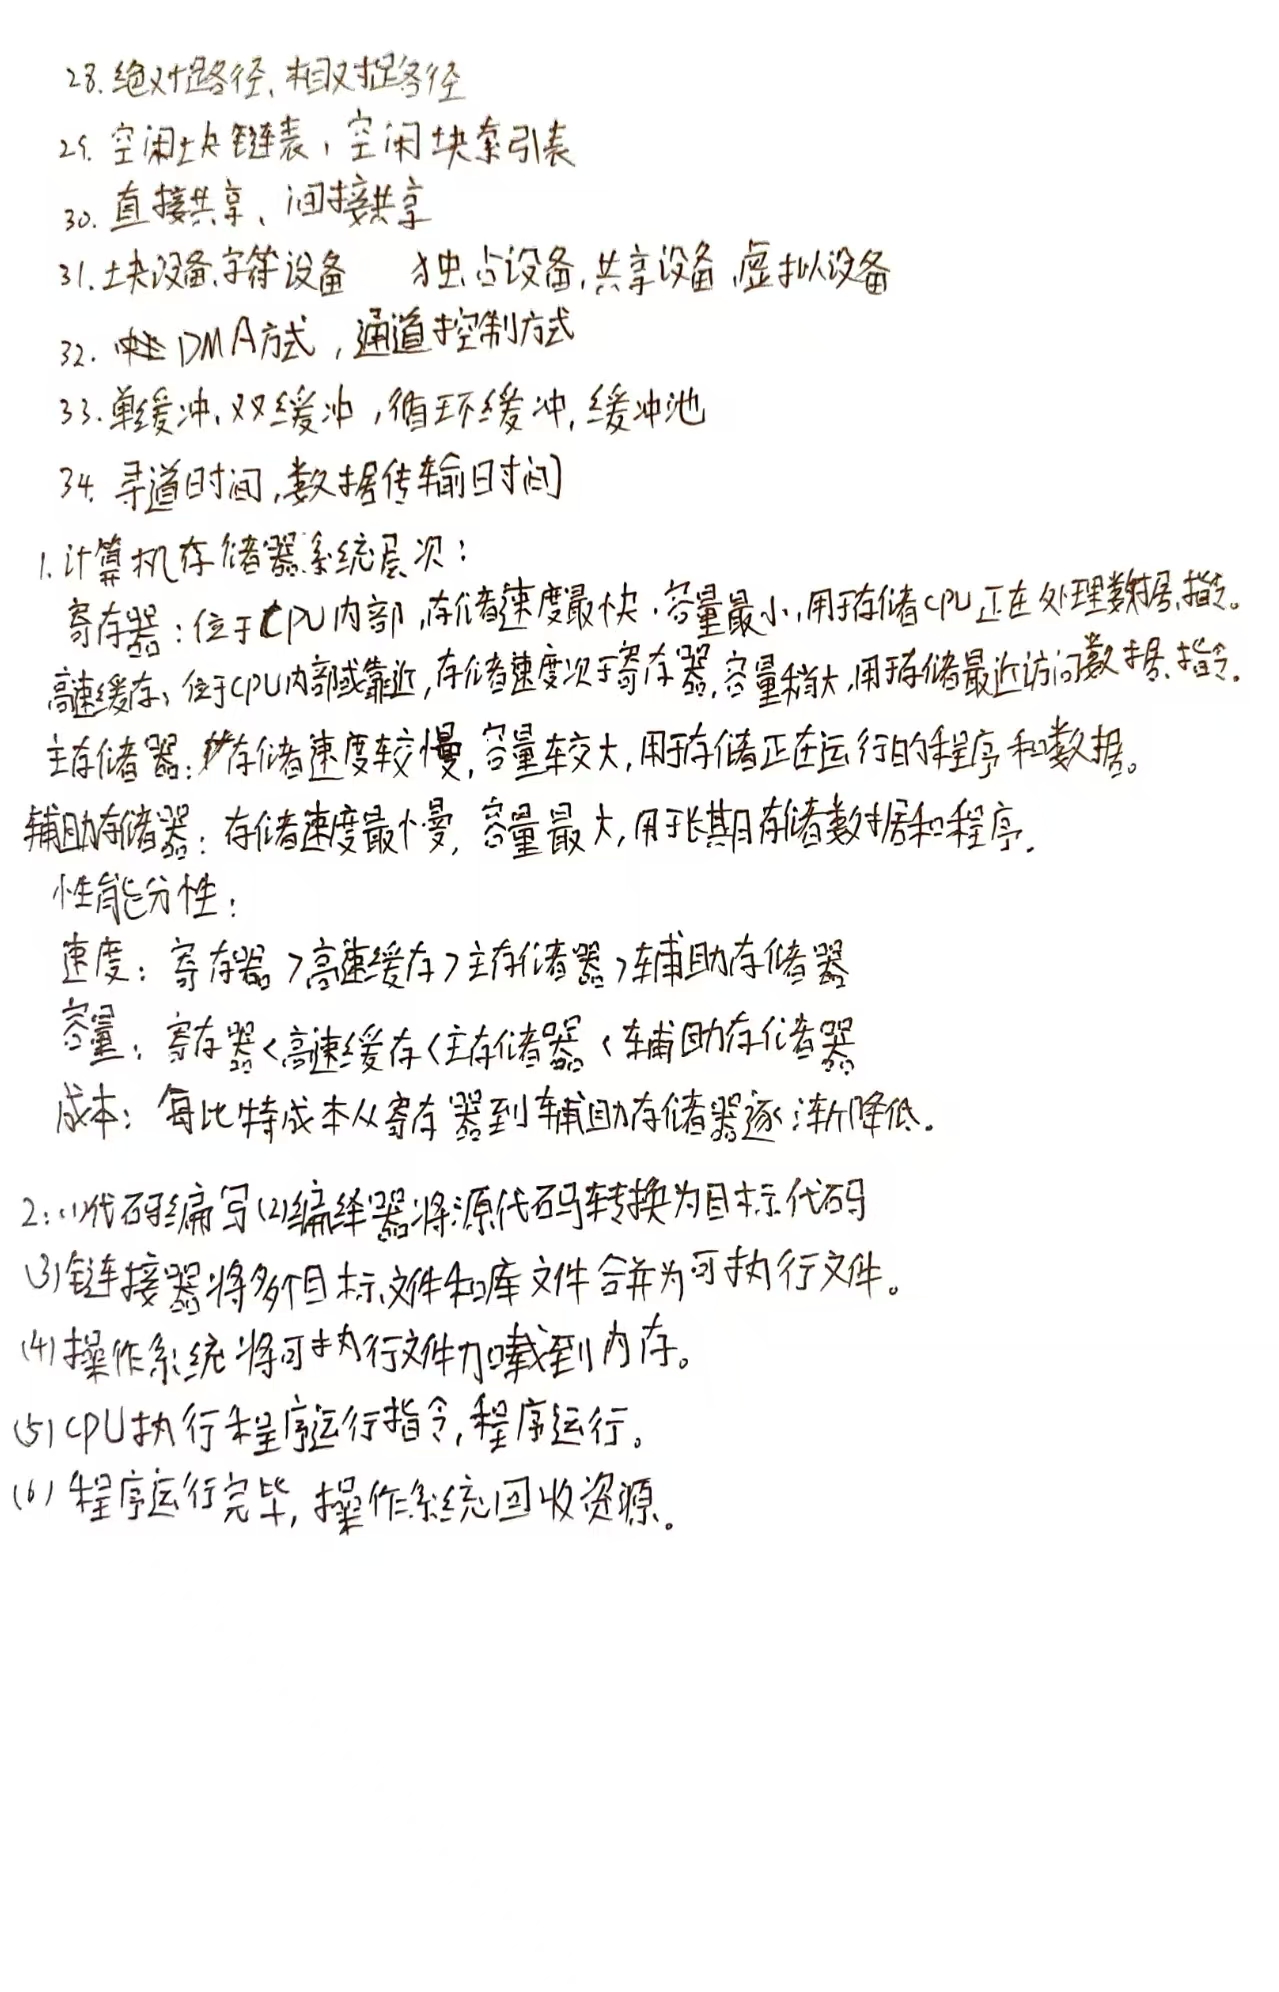 28. 绝对路径、相对路径
29. 空闲块链表，空闲块索引表
30. 直接共享、间接共享
31. 块设备、字符设备 独占设备,共享设备,虚拟设备
32. DMA方式，通道控制方式
33. 单缓冲,双缓冲,循环缓冲,缓冲池
34. 寻道时间,数据传输时间
1. 计算机存储器系统层次：
寄存器：位于CPU内部,存储速度最快.容量最小,用于存储CPU正在处理数据、指令。
高速缓存：位于CPU内部或靠近,存储速度次于寄存器,容量稍大,用于存储最近访问数据、指令.
主存储器：存储速度较慢,容量较大,用于存储正在运行的程序和数据。
辅助存储器：存储速度最慢,容量最大,用于长期存储数据和程序.
性能分性：
速度：寄存器>高速缓存>主存储器>辅助存储器
容量：寄存器<高速缓存<主存储器<辅助存储器
成本：每比特成本从寄存器到辅助存储器逐渐降低.
2：(1)代码编写(2)编绎器将源代码转换为目标代码
(3)链接器将多个目标文件和库文件合并为可执行文件。
(4)操作系统将可执行文件加载到内存。
(5)CPU执行程序运行指令,程序运行。
(6)程序运行完毕,操作系统回收资源.